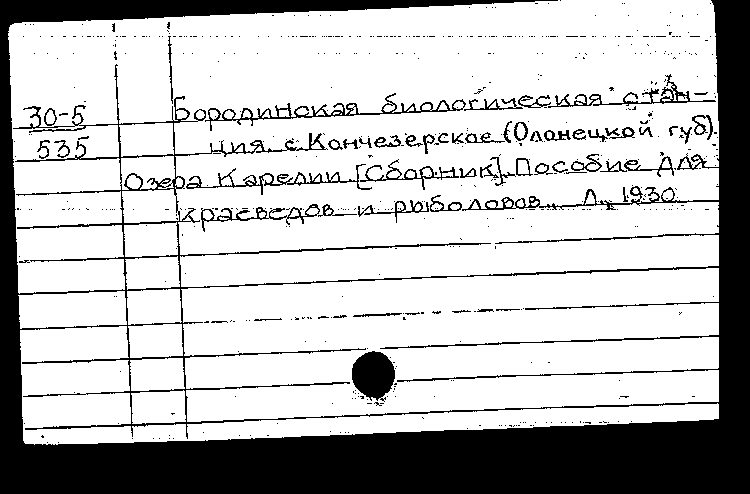 30-5 Бородинская биологическая стан-
535 ция. с. Кончезерское (Олонецкой губ).
Озера Карелии [Сборник]. Пособие для
краеведов и рыболовов. Л., 1930